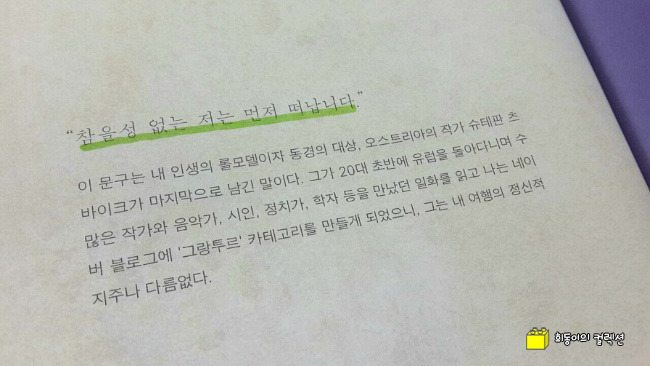 “참을성 없는 저는 먼저 떠납니다.”
이 문구는 내 인생의 롤모델이자 동경의 대상, 오스트리아의 작가 슈테판 츠
바이크가 마지막으로 남긴 말이다. 그가 20대 초반에 유럽을 돌아다니며 수
많은 작가와 음악가, 시인, 정치가, 학자 등을 만났던 일화를 읽고 나는 네이
버 블로그에 '그랑투르' 카테고리를 만들게 되었으니, 그는 내 여행의 정신적
지주나 다름없다.
희동이의 컬렉션